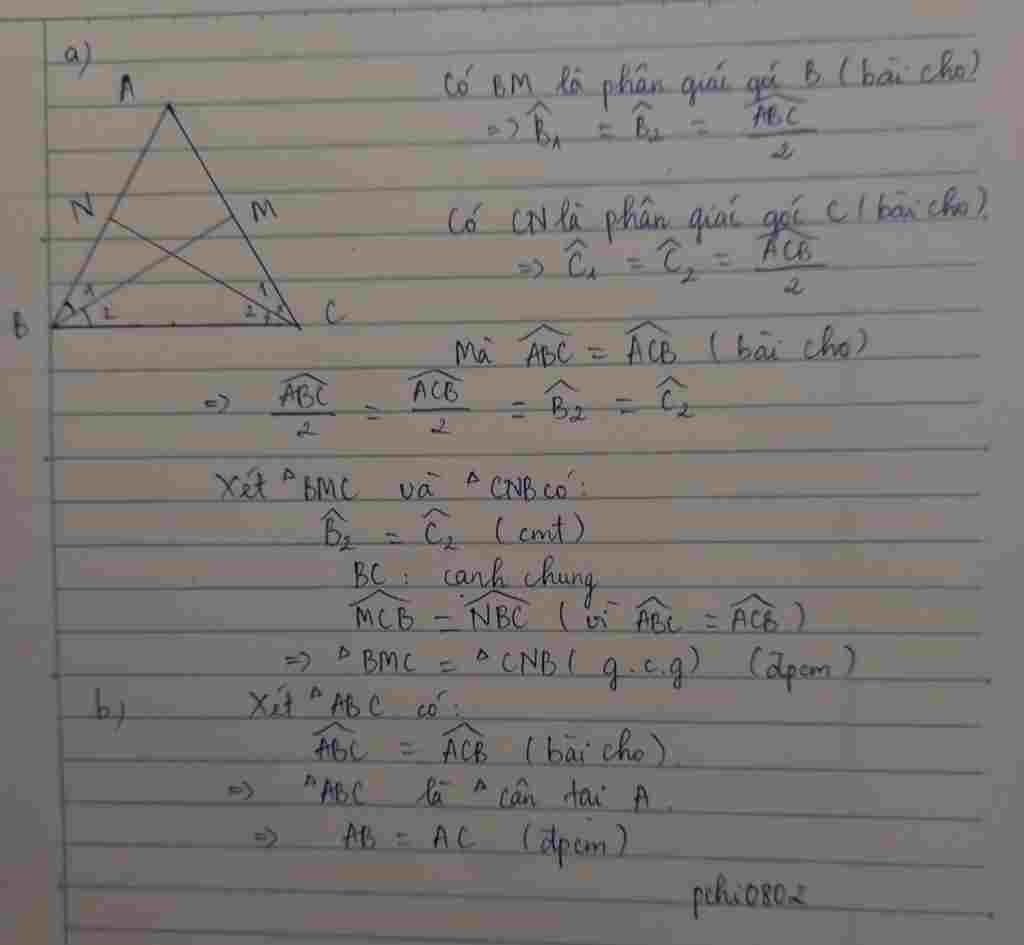 a)
A
Có BM là phân giái gó B (bài cho)
=> B̂₁ = B̂₂ = \frac{\widehat{ABC}}{2}
N M
Có CN là phân giái góc C (bài cho).
=> Ĉ₁ = Ĉ₂ = \frac{\widehat{ACB}}{2}
1 2 1 2
B C
Mà \widehat{ABC} = \widehat{ACB} (bài cho)
=> \frac{\widehat{ABC}}{2} = \frac{\widehat{ACB}}{2} = B̂₂ = Ĉ₂
Xét ΔBMC và ΔCNB có:
B̂₂ = Ĉ₂ (cmt)
BC : cạnh chung
\widehat{MCB} = \widehat{NBC} (vì \widehat{ABC} = \widehat{ACB})
=> ΔBMC = ΔCNB (g.c.g) (đpcm)
b) Xét ΔABC có:
\widehat{ABC} = \widehat{ACB} (bài cho)
=> ΔABC là Δ cân tai A.
=> AB = AC (đpcm)
pchi0802